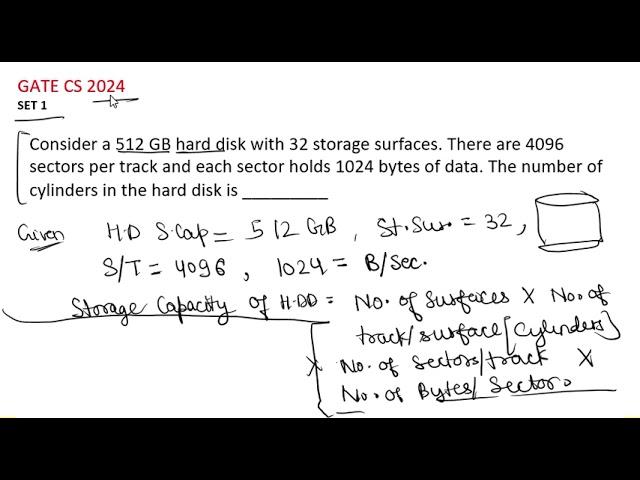 GATE CS 2024
SET 1
Consider a 512 GB hard disk with 32 storage surfaces. There are 4096
sectors per track and each sector holds 1024 bytes of data. The number of
cylinders in the hard disk is __________
Given H.D S.Cap = 512 GB, St.Sur. = 32,
S/T = 4096, 1024 = B/Sec.
Storage Capacity of HDD = No. of Surfaces X No. of
track/surface [Cylinders]
X No. of Sectors/track X
No. of Bytes/Sector.